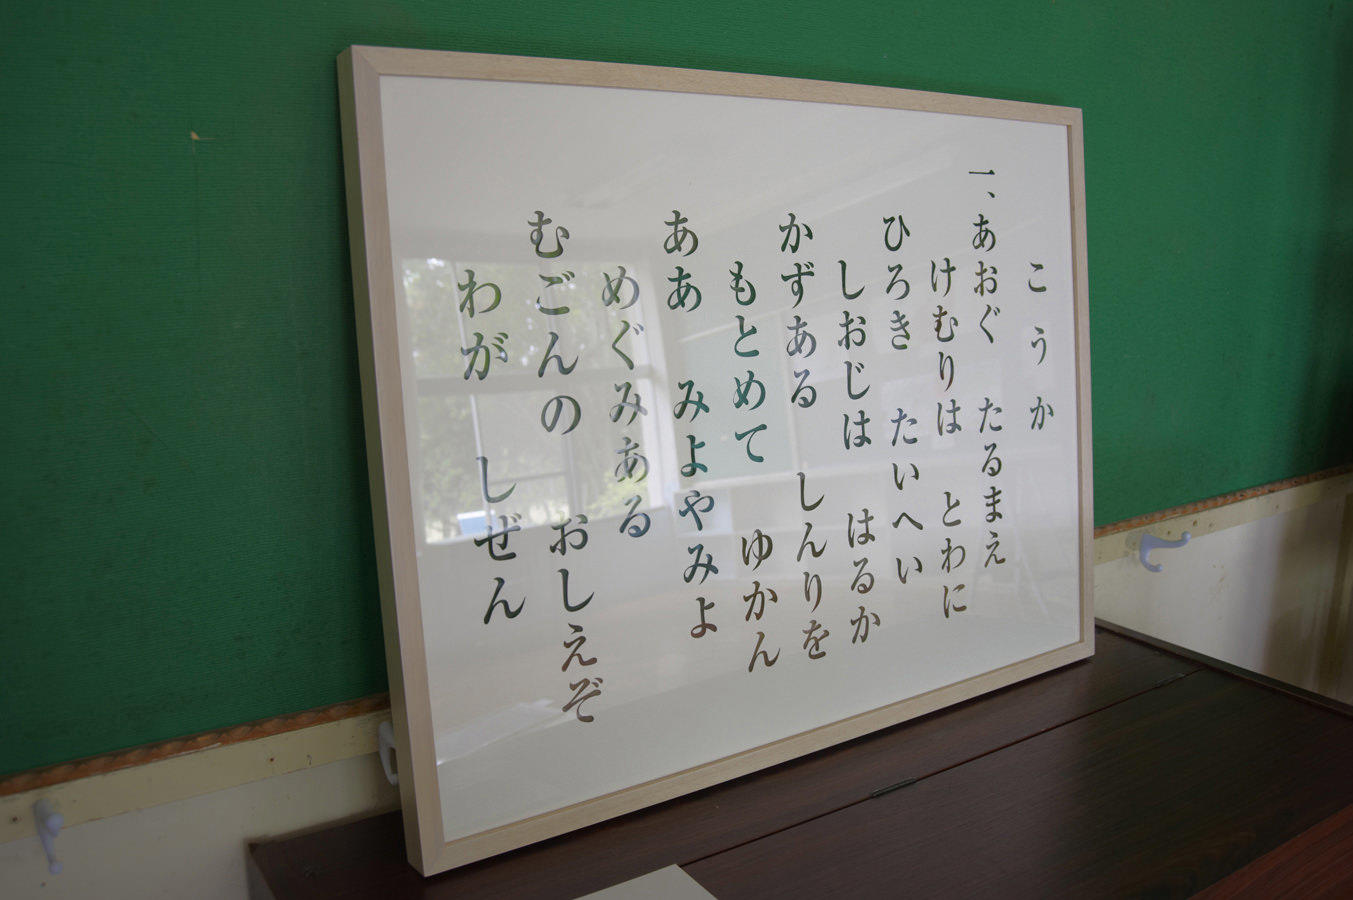 こうか
一、あおぐ　たるまえ
けむりは　とわに
ひろき　たいへい
しおじは　はるか
かずある　しんりを
もとめて　ゆかん
ああ　みよやみよ
めぐみある
むごんの　おしえぞ
わが　しぜん